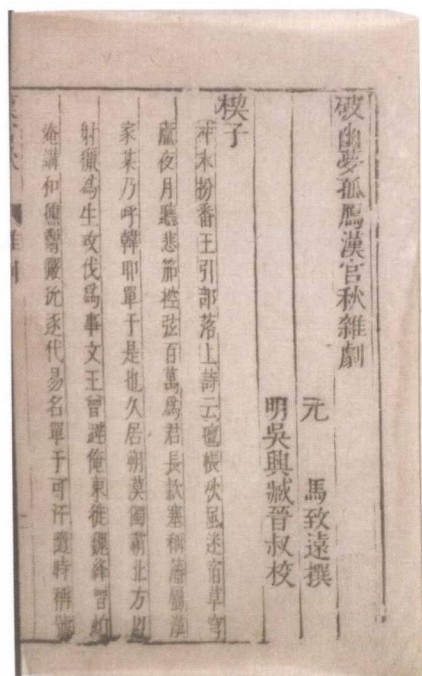 破幽夢孤鴈漢宮秋雜劇
元 馬致遠撰
明吳興臧晉叔校
楔子
沖末扮番王引部落上詩云氊帳秋風迷宿草穹
廬夜月聽悲笳控弦百萬爲君長欵塞稱藩屬漢
家某乃呼韓耶單于是也久居朔漠獨霸北方以
射獵爲生攻伐爲事文王曾避俺東徙魏絳曾怕
俺講和獯鬻玁狁逐代易名單于可汗隨時稱號